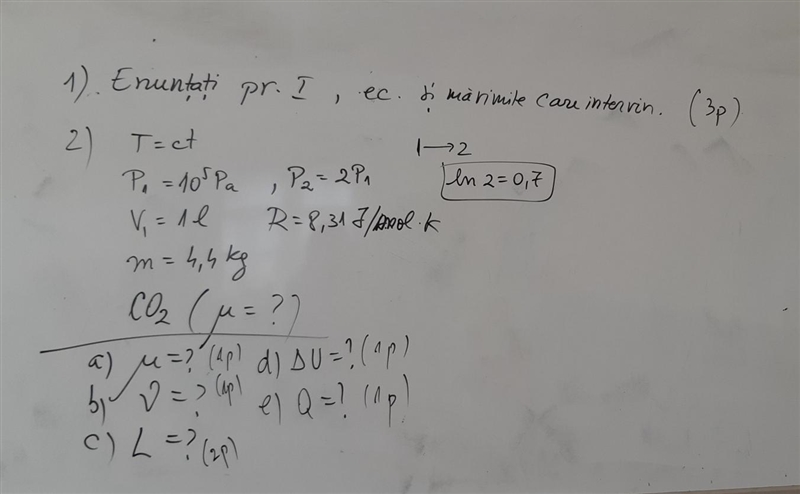 1). Enunțați pr. I, ec. și mărimile care intervin. (3p)
2) T = ct 1→2
P₁ = 10⁵Pa, P₂ = 2P₁ ln 2 = 0,7
V₁ = 1 l R = 8,31 J/mol·K
m = 4,4 kg
CO₂ (μ = ?)
a) μ = ? (1p) d) ΔU = ? (1p)
b) ν = ? (1p) e) Q = ? (1p)
c) L = ? (2p)